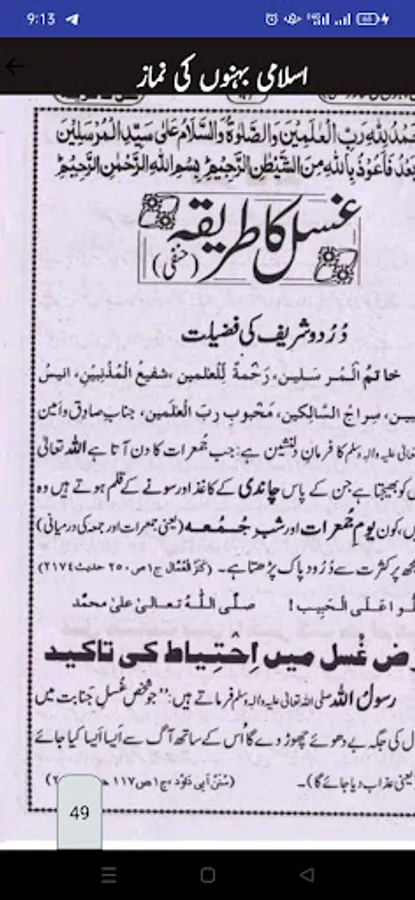 9:13
اسلامی بہنوں کی نماز
حَمْدُ لِلّٰهِ رَبِّ الْعٰلَمِيْنَ وَالصَّلٰوةُ وَالسَّلَامُ عَلٰى سَيِّدِ الْمُرْسَلِيْنَ
بَعْدُ فَاَعُوْذُ بِاللّٰهِ مِنَ الشَّيْطٰنِ الرَّجِيْمِ بِسْمِ اللّٰهِ الرَّحْمٰنِ الرَّحِيْمِ
غسل کا طریقہ (حنفی)
دُرُود شریف کی فضیلت
خاتَمُ الْمُرسَلین، رَحْمَةٌ لِّلْعٰلمین، شفیعُ الْمُذْنِبین، انیسُ
سراجُ السَّالِکین، مَحْبوبِ ربِّ العٰلَمین، جنابِ صادِق و امین
تعالیٰ علیہ والہٖ وسلم کا فرمانِ دلنشین ہے: جب جُمعرات کا دن آتا ہے اللہ تعالیٰ
کو بھیجتا ہے جن کے پاس چاندی کے کاغذ اور سونے کے قلم ہوتے ہیں وہ
کون یومِ جُمعرات اور شبِ جُمعہ (یعنی جمعرات اور جمعہ کی درمیانی)
پر کثرت سے دُرُودِ پاک پڑھتا ہے۔ (کَنْزُ الْعُمّال ج۱ ص۲۵۰ حدیث ۲۱۷۴)
عَلَی الْحَبِیب! صلَّی اللّٰهُ تعالیٰ علیٰ محمَّد
غُسل میں اِحْتِیاط کی تاکید
رسولُ اللہ صلی اللہ تعالیٰ علیہ والہٖ وسلم فرماتے ہیں: "جو شخص غسلِ جَنابت میں
کی جگہ بے دھوئے چھوڑ دے گا اُس کے ساتھ آگ سے ایسا ایسا کیا جائے
یعنی عذاب دیا جائے گا)۔ (سُنَنُ اَبِی دَاوٗد، ج۱ ص۱۱۷
49